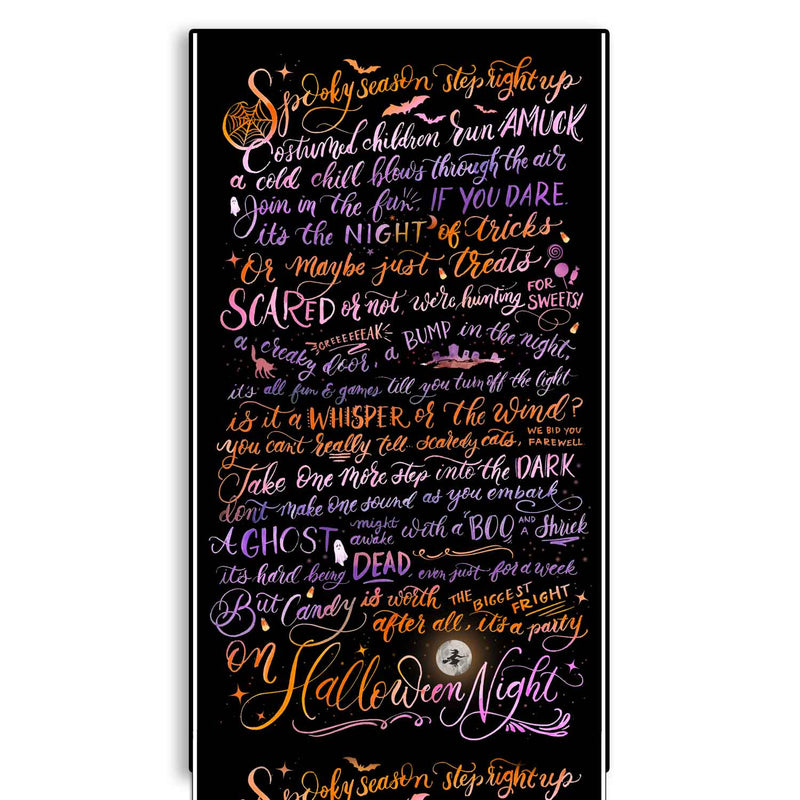 Spooky season step right up
Costumed children run AMUCK
a cold chill blows through the air
Join in the fun, IF YOU DARE.
it's the NIGHT of tricks
Or maybe just treats
SCARED or not, we're hunting FOR SWEETS!
a creaky door, CREEEEEEAK a BUMP in the night,
it's all fun & games till you turn off the light
is it a WHISPER or the wind?
you can't really tell.. scaredy cats, WE BID YOU FAREWELL
Take one more step into the DARK
don't make one sound as you embark
A GHOST might awake with a "BOO" AND A Shriek
it's hard being DEAD, even just for a week
But Candy is worth THE BIGGEST FRIGHT
after all, it's a party
on Halloween Night
Spooky season step right up